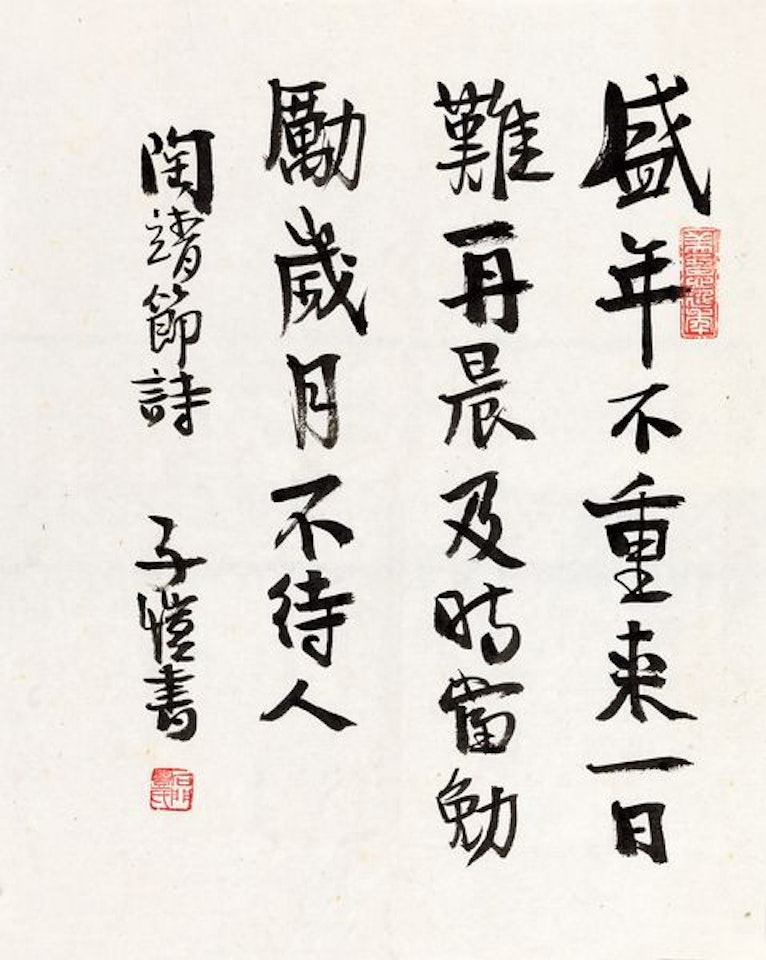 盛年不重来一日
難再晨及時當勉
勵歲月不待人
陶靖節詩 子愷書